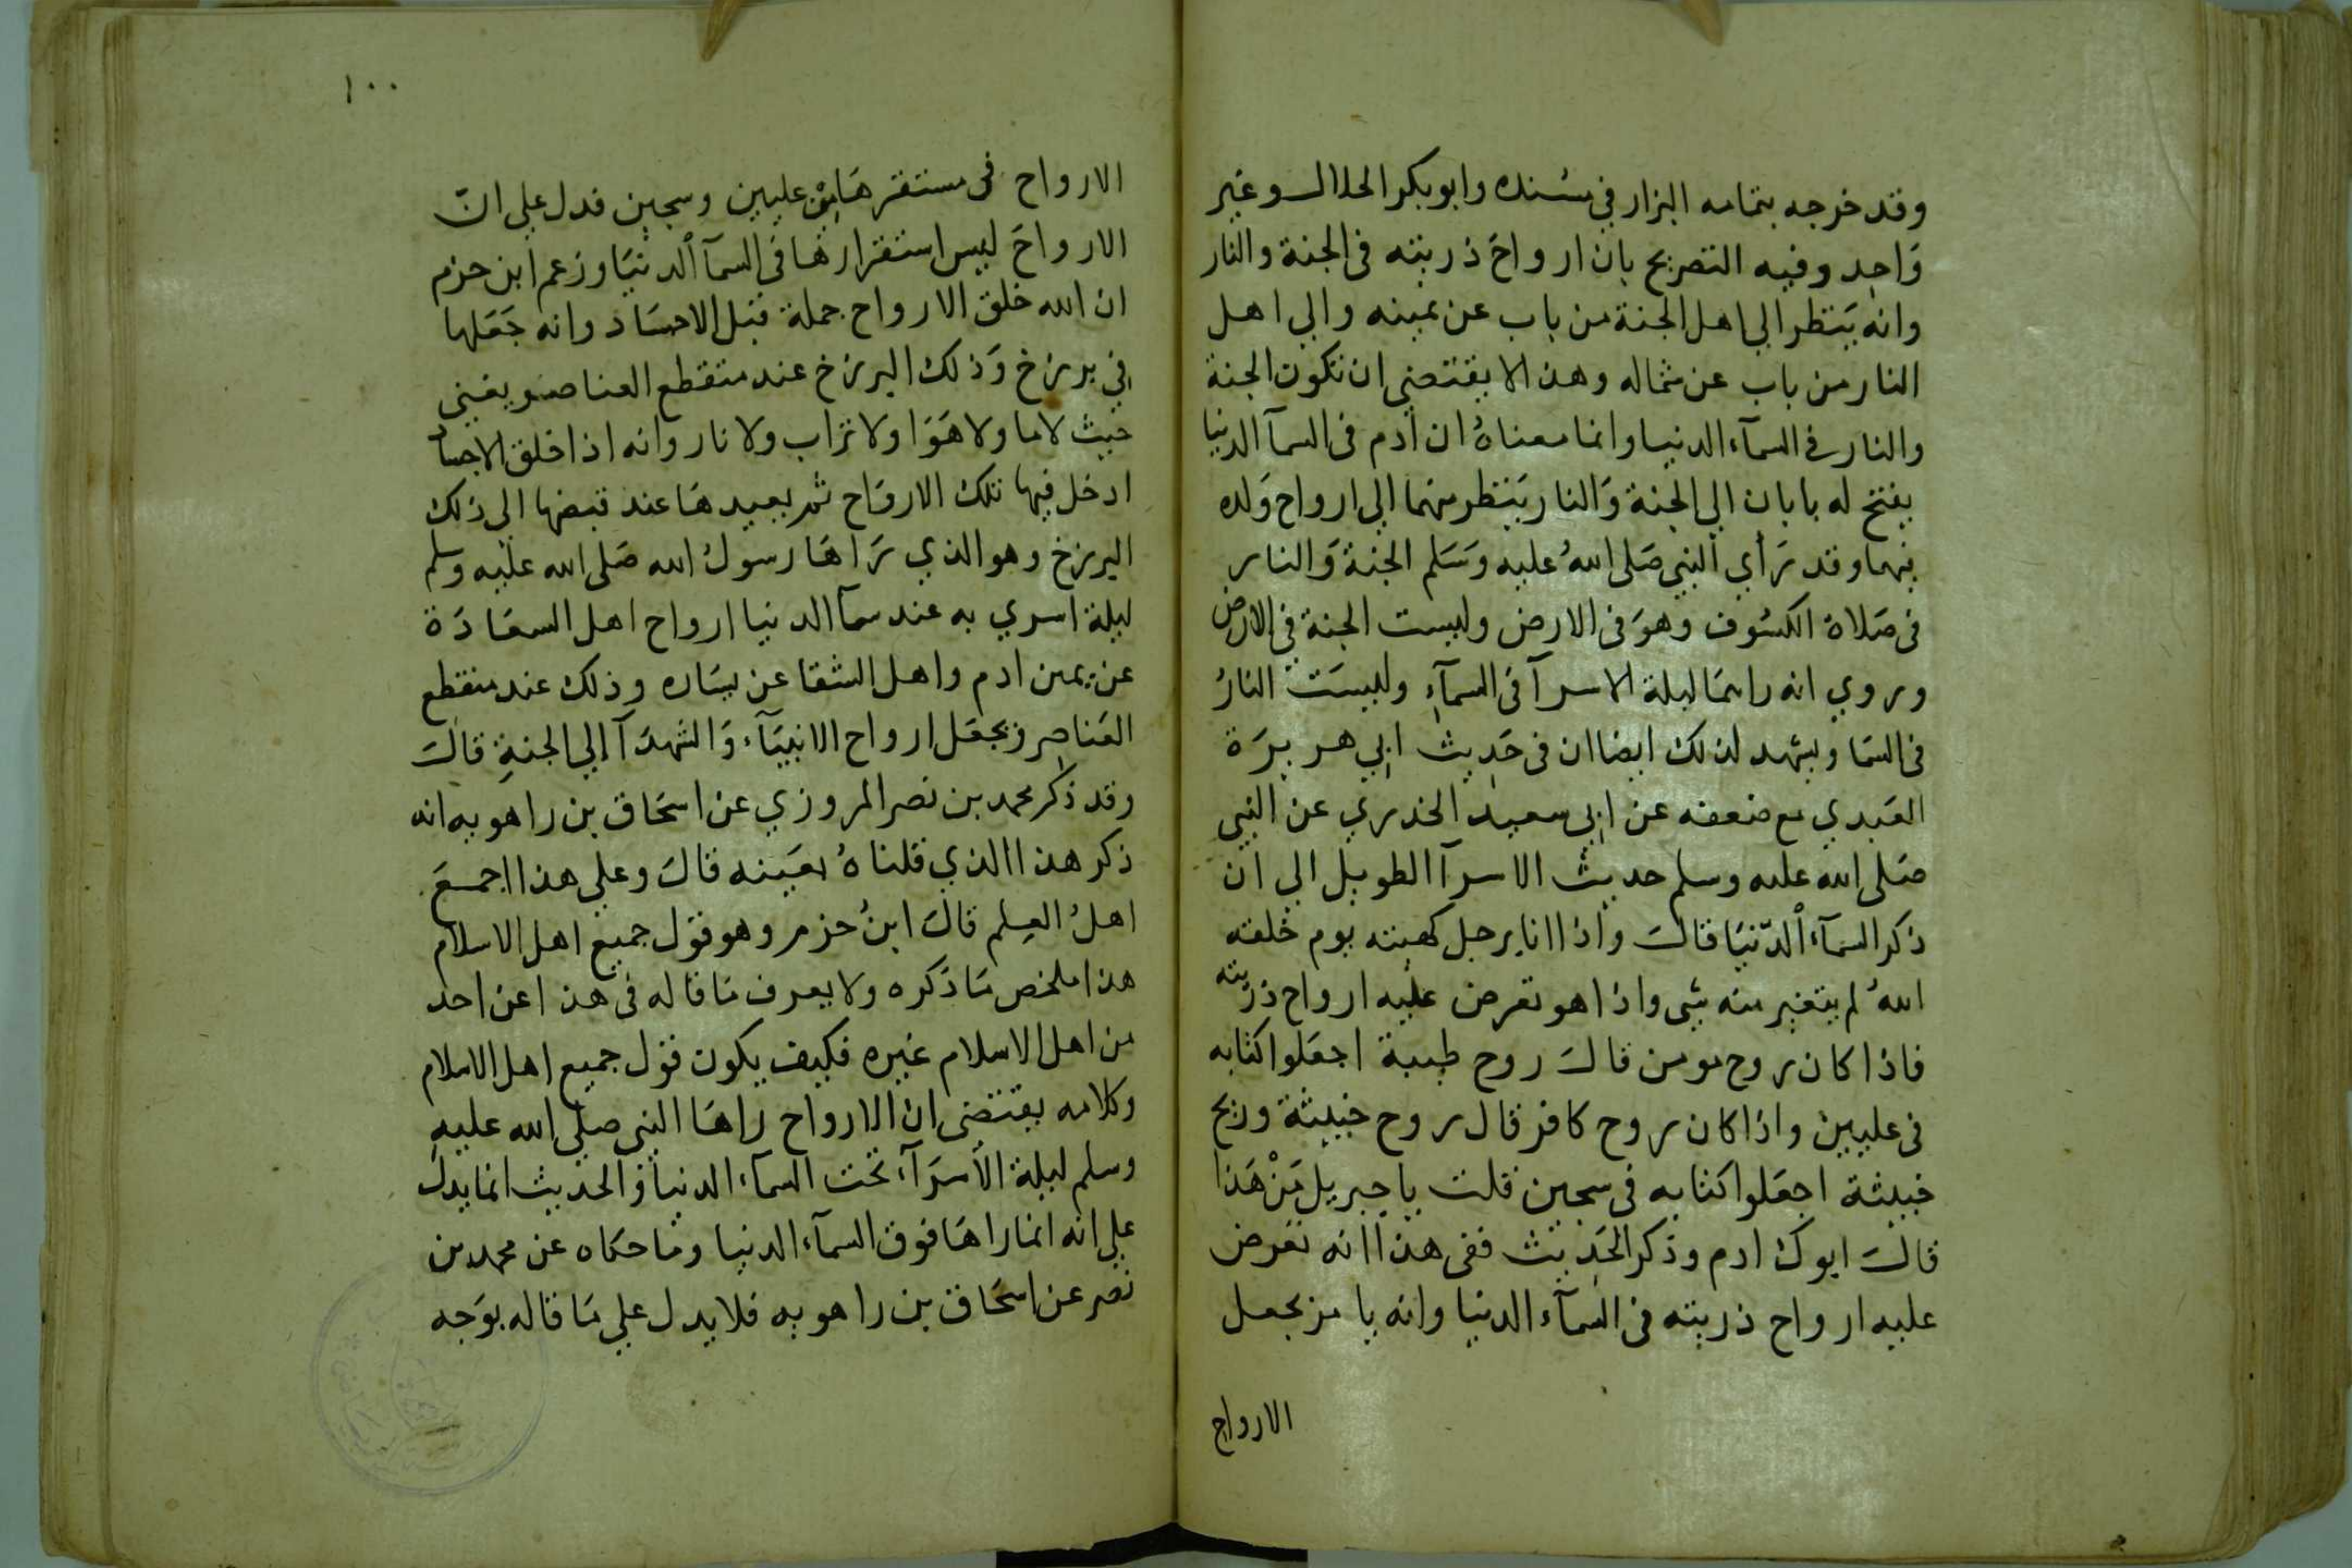 وقد خرجه بتمامه البزار في مسنده وابو بكر الخلال وغير
وَاحِد وفيه التصريح بان ارواحَ ذريته فى الجنة والنار
وانه يَنظر الي اهل الجنة من باب عن يمينه والي اهل
النار من باب عن شماله وهذا لا يقتضي ان تكون الجنة
والنار في السمآء الدنيا وانما معناهُ ان ادم فى السمآ الدنيا
يفتح له بابان الي الجنة وَالنار يَنظر منهما الي ارواح وَلده
فيهما وقد رَأي النبي صَلى اللهُ عليه وَسَلم الجنة وَالنار
فى صَلاة الكسُوف وهوَ فى الارض وليست الجنة في الارض
وروي انه راهَا ليلة الاسرآ فى السمآءِ وليسَت النارُ
فى السَما ويشهد لذلك ايضا ان فى حَدِيث ابي هريرَة
العَبدي مع ضعفه عن ابي سعيد الخدري عن النبي
صَلى الله عليه وسلم حديث الاسرآ الطويل الي ان
ذكر السمآء الدّنيَا قالَ واذا انا برجل كهيئته يوم خلقه
اللهُ لم يتغير منه شى واذا هو تعرض عليه ارواح ذريته
فاذا كان روح مومن قالَ روح طيبة اجعَلوا كتابه
فى عليين واذا كان روح كافر قال روح خبيثة وريح
خبيثة اجعَلوا كتابه فى سجين قلت يا جبريل مَنْ هَذا
قالَ ابوك ادم وذكر الحَدِيث ففى هذا انه تعرض
عليه ارواح ذريته فى السمآء الدنيا وانه يامر بجعل
الارواح
١٠٠
الارواح فى مستقرهَا من عليين وسجين فدل علي انّ
الارواحَ ليس استقرارهَا فى السمآ الدنيَا وزعم ابن حزم
ان الله خلق الارواح جملة قبل الاجسَاد وانه جَعَلها
في برزخ وَذلك البرزخ عند منقطع العناصر يعنى
حيث لا ما ولا هَوَا ولا تراب ولا نار وانه اذا خلق الاجساد
ادخل فيها تلك الاروَاح ثم يعيدهَا عند قبضها الي ذلك
البرزخ وهو الذي رَاهَا رسولُ الله صَلى الله عليه وسلم
ليلة اسري به عند سمآ الدنيا ارواح اهل السعَادَة
عن يمين ادم واهل الشقا عن يسَاره وذلك عند منقطع
العَناصِر وبجعَل ارواح الانبيَآء وَالشهدَآ الي الجنةِ قالَ
وقد ذكر محمد بن نصر المروزي عن اسحَاق بن راهويه انه
ذكر هذا الذي قلناهُ بعَينه قالَ وعلي هذا اجمعَ
اهلُ العِلم قالَ ابنُ حزم وهو قول جميع اهل الاسلام
هذا ملخص مَا ذكره ولا يعرف مَا قاله فى هذا عن احد
من اهل الاسلام غيره فكيف يكون قول جميع اهل الاسلام
وكلامه يقتضى ان الارواح راهَا النبى صلي الله عليه
وسلم ليلة الأسرَآء تحت السمآء الدنيا والحديث انما يدل
علي انه انما راهَا فوق السمآء الدنيا ومَا حكاه عن محمد بن
نصر عن اسحَاق بن راهويه فلا يدل علي مَا قاله بوَجه